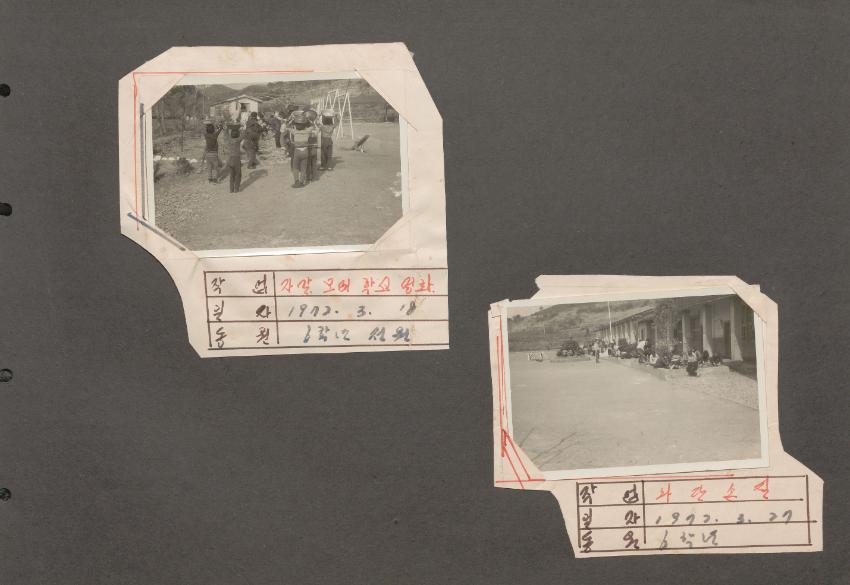 작업 자갈 모여 학교 영화
일자 1972. 3. 18
동원 6학년 전원
작업 화단 손질
일자 1972. 3. 27
동원 6학년